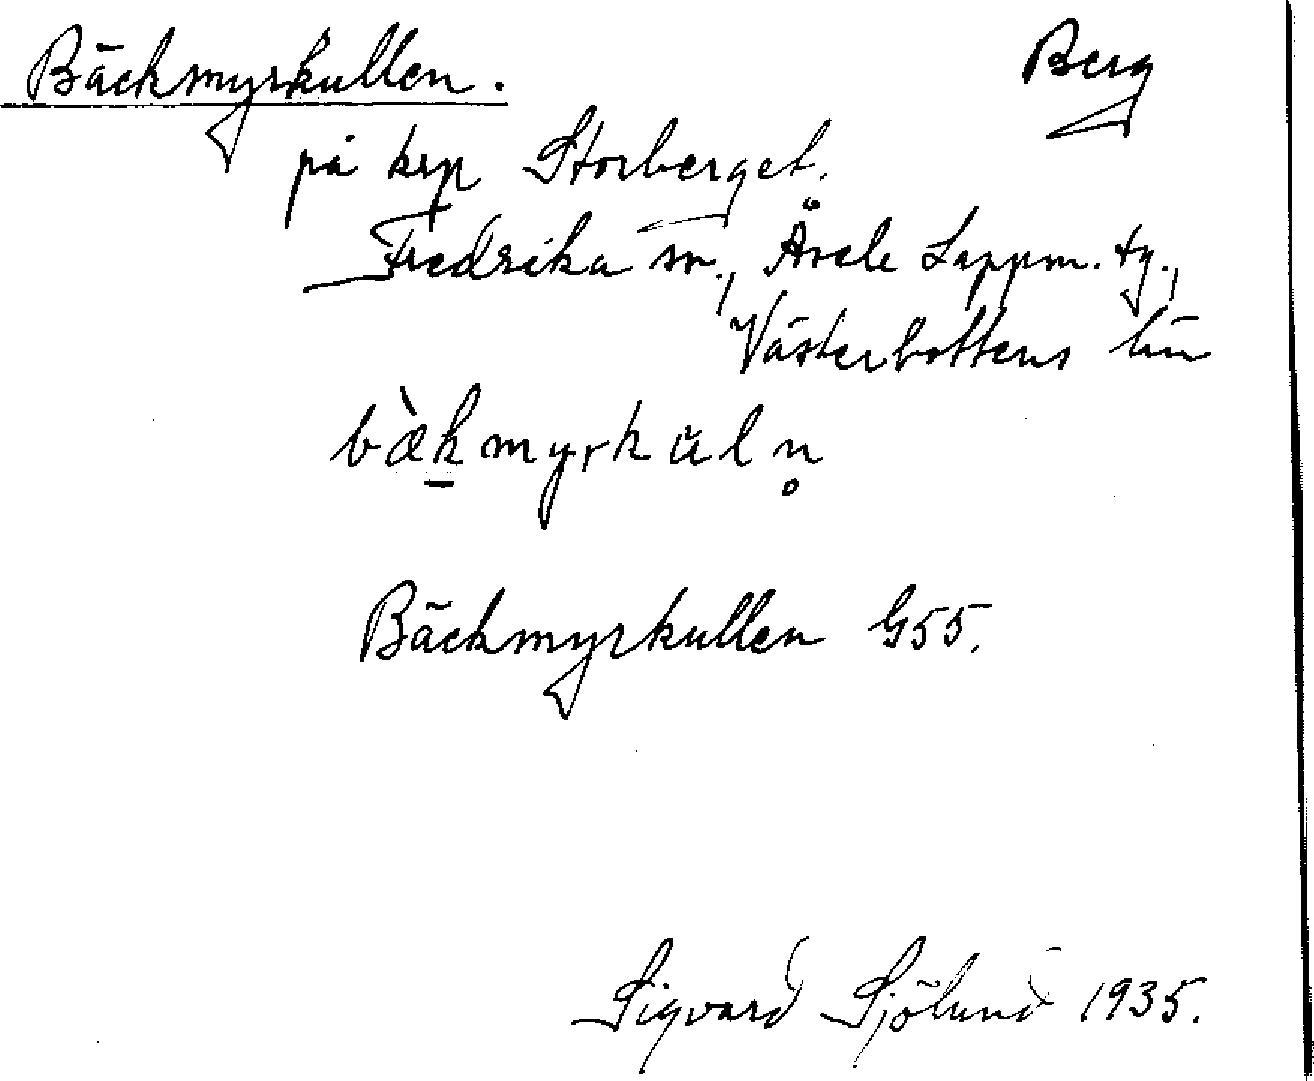 Bäckmyrkullen. Berg
på krp Storberget.
Fredrika sn., Åsele Lappm. tg.,
Västerbottens län
bæ̀k̠myrkŭln̥
Bäckmyrkullen G55.
Sigvard Sjölund 1935.